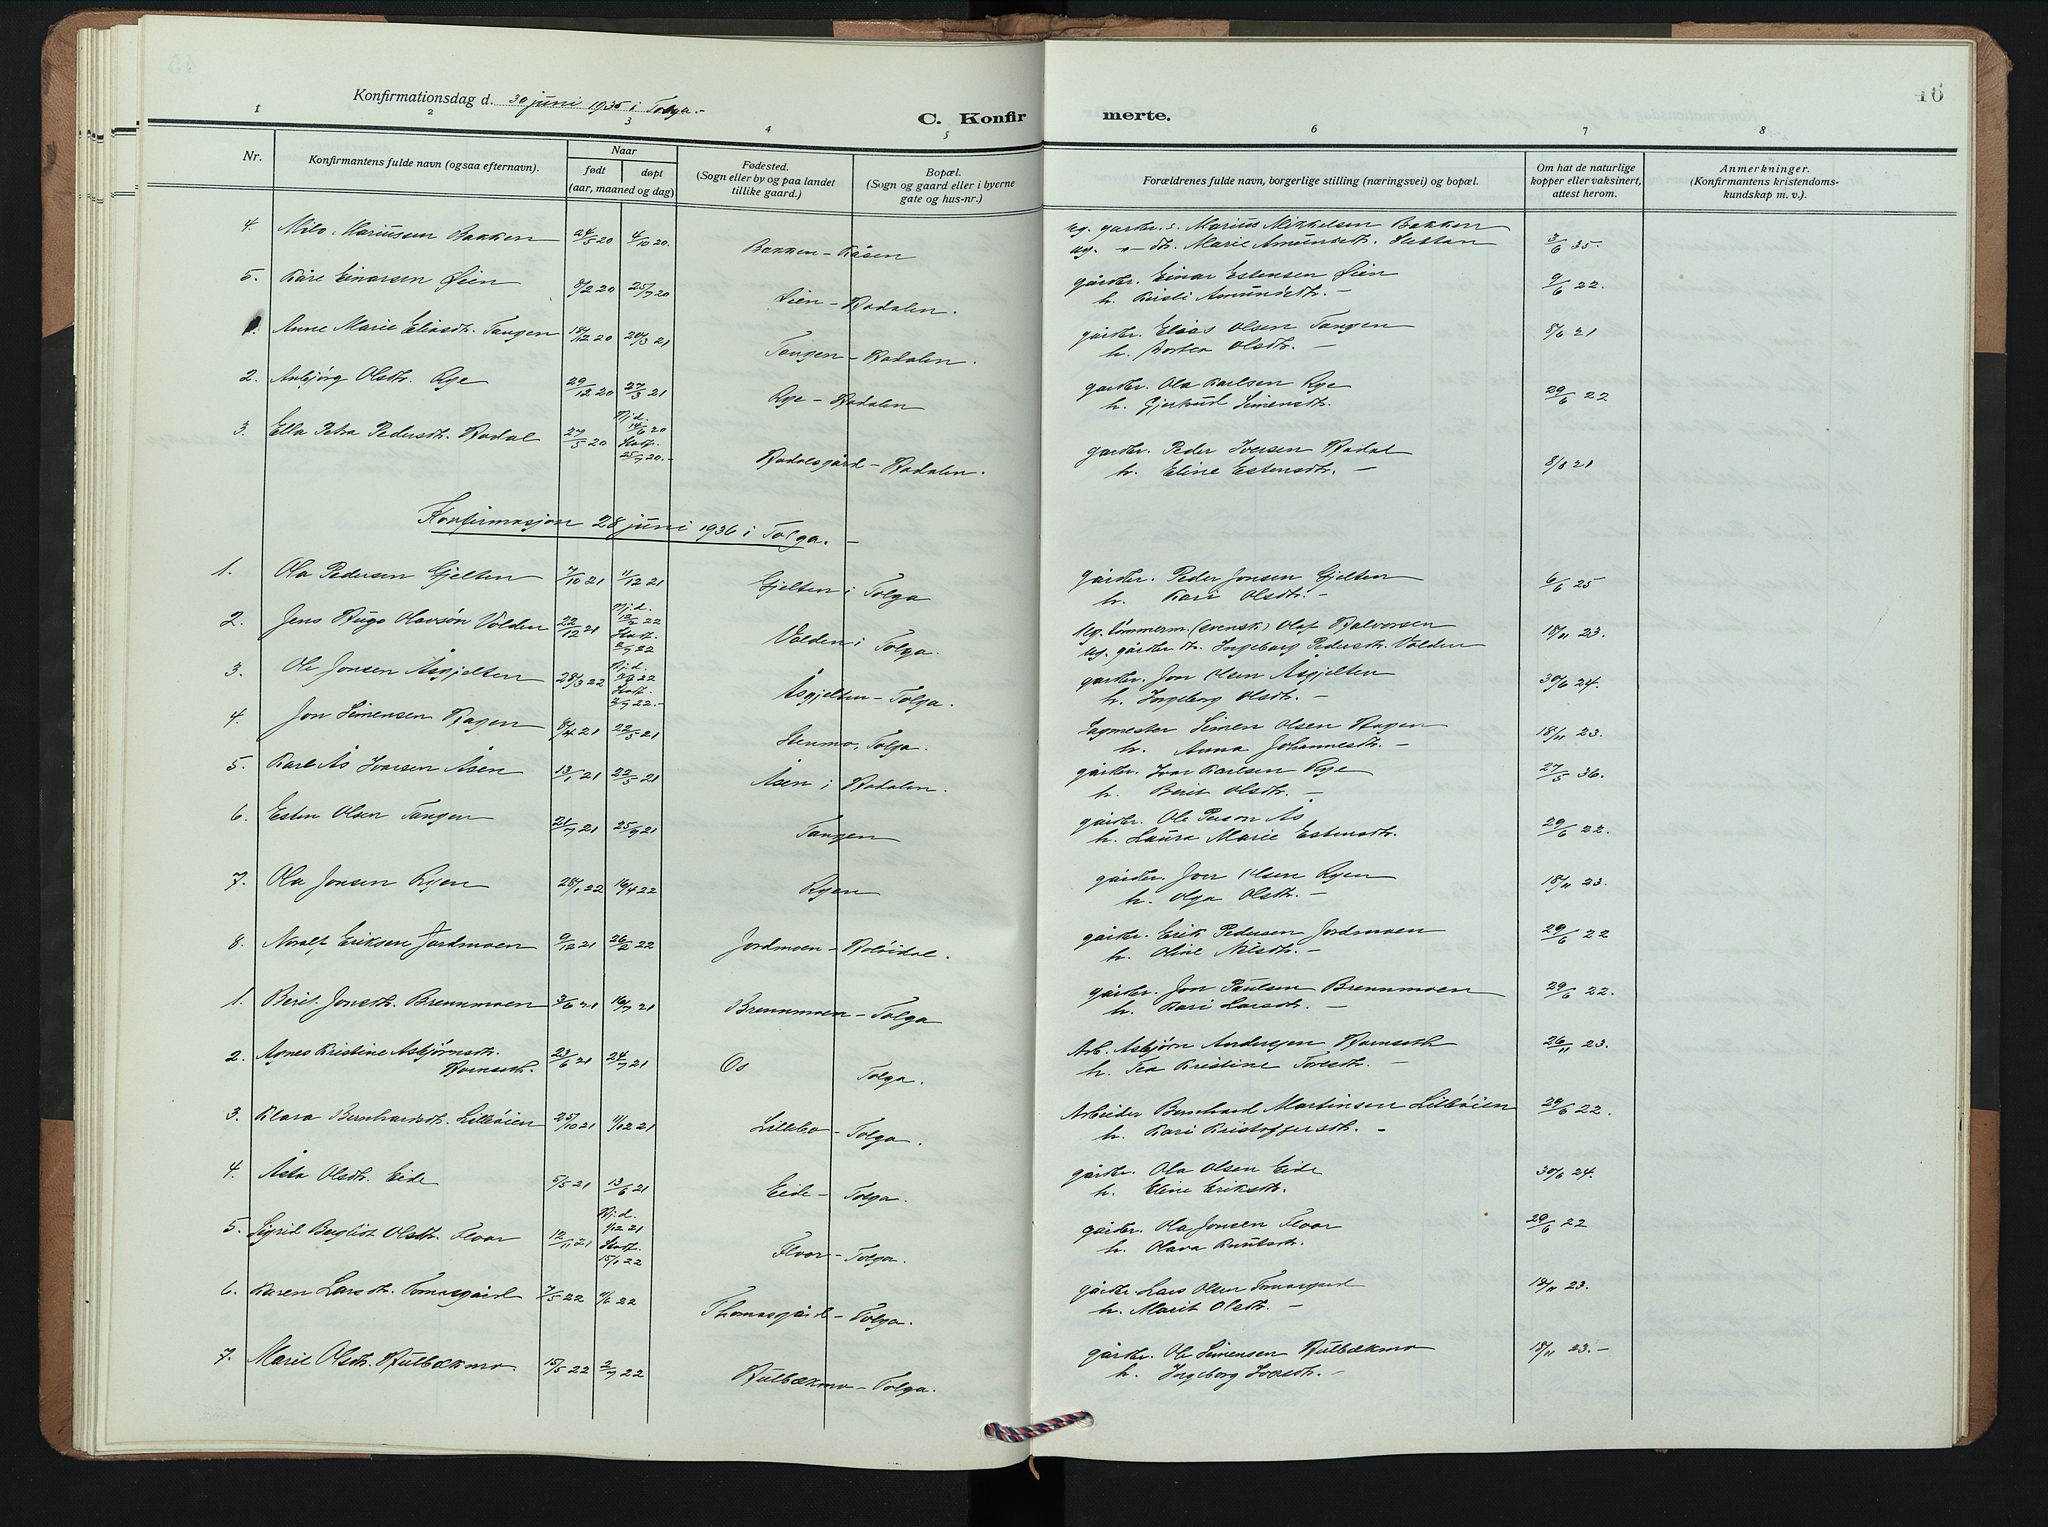 46
Konfirmationsdag d. 30 juni 1935 i Tolga.-
C. Konfirmerte.
1 2 3 4 5 6 7 8
Nr.
Konfirmantens fulde navn (ogsaa efternavn).
Naar
født døpt
(aar, maaned og dag)
Fødested.
(Sogn eller by og paa landet
tillike gaard.)
Bopæl.
(Sogn og gaard eller i byerne
gate og hus-nr.)
Forældrenes fulde navn, borgerlige stilling (næringsvei) og bopæl.
Om hat de naturlige
kopper eller vaksinert,
attest herom.
Anmerkninger.
(Konfirmantens kristendoms-
kundskap m. v.).
4. Milo Mariussen Bakken 24/5 20 4/10 20. Bakken - Kåsen Ug. gardbr. s. Marius Mikkelsen Bakken 3/6 35.
ug. - dtr. Marie Amundsdtr.
5. Kåre Einarsen Øien 8/2 20 25/7 20 Øien - Hodalen. gårdbr. Einar Estensen Øien 9/6 22.
h. Kristi Amundsdtr. -
Anne Marie Eliasdtr. Tangen 18/12 20 20/3 21 Tangen - Hodalen. gårdbr. Elias Olsen Tangen 8/6 21
h. Olsdtr. -
2. Anbjørg Olsdtr. Rye 29/12 20 27/3 21 Rye - Hodalen gardbr. Ola Karlsen Rye 29/6 22
h. Gjertrud Simensdtr.
3. Ella Petra Pedersdtr. Hodal 27/5 20 Hj.d. 14/6 20 Stadf. 25/7 20.- Hodalsgård - Hodalen. gardbr. Peder Iversen Hodal 8/8 21
h. Eline Estensdtr. -
Konfirmasjon 28 juni 1936 i Tolga. -
1. Ola Pedersen Gjelten 7/10 21 11/12 21 Gjelten i Tolga gårdbr. Peder Jonsen Gjelten 6/6 25
h. Kari Olsdtr. -
2. Jens Hugo Olavsøn Volden 22/12 21 Hj.d. 22 Stadf. 2/7 22 Volden i Tolga. Ug. tømmerm. (svensk) Olaf Halvorsen 18/11 23.
ug. gårdbr dtr. Ingeborg Pedersdtr. Volden
3. Ole Jonsen Åsgjelten 28/3 22 Hj.d. 22 Stadf. 2/7 22.- Åsgjelten - Tolga. gardbr. Jon Olsen Åsgjelten 30/6 24.
h. Ingeborg Olsdtr. -
4. Jon Simensen Hagen 8/4 21 22/5 21 Stenmo, Tolga. Sagmester Simen Olsen Hagen 18/11 23.
h. Anna Johannesdtr. -
5. Karl Ås Ivarsen Åsen 13/1 21 22/5 21 Åsen i Hodalen. gårdbr. Ivar Karlsen Rye 27/5 36.
h. Berit Olsdtr. -
6. Esten Olsen Tangen 21/7 21 25/9 21 Tangen gårdbr. Ole Person Ås 29/6 22.
h. Laura Marie Estensdtr.
7. Ola Jonsen Ryen 28/1 22 16/4 22 Ryen gårdbr. Jon Olsen Ryen 18/11 23.
h. Olga Olsdtr. -
8. Noralf Eriksen Jordmoen 9/12 21 26/2 22 Jordmoen - Holøidal. gårdbr. Erik Pedersen Jordmoen 29/6 22
h. Oline Nilsdtr. -
1. Berit Jonsdtr. Brennmoen 3/6 21 16/7 21 Brennmoen - Tolga gårdbr. Jon Paulsen Brennmoen 29/6 22.
h. Kari Larsdtr. -
2. Agnes Kristine Asbjørnsdtr. 23/6 21 24/7 21 Os Tolga. Arb. Asbjørn Andersen Hornseth 26/11 23.
Hornseth. h. Tea Kristine Toresdtr. -
3. Klara Bernhardsdtr. Lilleøien 25/10 21 11/12 21 Lillebo - Tolga. Arbeider Bernhard Martinsen Lilleøien 29/6 22.
h. Kari Kristoffersdtr. -
4. Åsta Olsdtr. Eide 5/5 21 13/6 21 Eide - Tolga. gårdbr. Ola Olsen Eide 30/6 24.
h. Eline Eriksdtr.
5. Sigrid Bergliot Olsdtr. Floor 12/11 21 Hj.d. 1/12 21 Stadf. 15/1 22 Floor - Tolga. gårdbr. Ola Jonsen Floor 29/6 22
h. Olava Knutsdtr.
6. Karen Larsdtr. Tomasgård 7/5 22 22 Thomasgård - Tolga. gårdbr Lars Olsen Tomasgard 18/11 23.
h. Marit Olsdtr. -
7. Marit Olsdtr. Hulbækmo. 15/5 22 2/7 22 Hulbækmo - Tolga. gårdbr. Ole Simensen Hulbækmo 18/11 23.-
h. Ingeborg Iversdtr. -